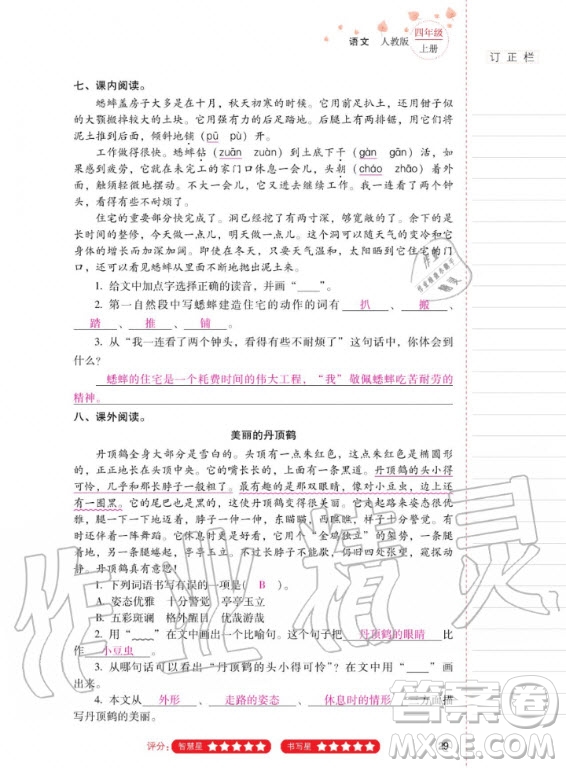 语文 人教版 四年级上册
订正栏
七、课内阅读。
蟋蟀盖房子大多是在十月，秋天初寒的时候。它用前足扒土，还用钳子似
的大颚搬掉较大的土块。它用强有力的后足踏地。后腿上有两排锯，用它们将
泥土推到后面，倾斜地铺（pū pù）开。
工作做得很快。蟋蟀钻（zuān zuàn）到土底下干（gàn gān）活，如
果感到疲劳，它就在未完工的家门口休息一会儿，头朝（cháo zhāo）着外面，
触须轻微地摆动。不大一会儿，它又进去继续工作。我一连看了两个钟头，看
得有些不耐烦了。
住宅的重要部分快完成了。洞已经挖了有两寸深，够宽敞的了。余下的是
长时间的修整，今天做一点，明天做一点。这个洞可以随天气的变冷和它身体
的增长而加深加阔。即使在冬天，只要天气温和，太阳晒到它住宅的门口，还
可以看见蟋蟀从里面不断地抛出泥土来。
1. 给文中加点字选择正确的读音，并画“____”。
2. 第一自然段中写蟋蟀建造住宅的动作的词有 扒 、 搬 、
踏 、 推 、 铺 。
3. 从“我一连看了两个钟头，看得有些不耐烦了”这句话中，你体会到
什么？
蟋蟀的住宅是一个耗费时间的伟大工程，“我”敬佩蟋蟀吃苦耐劳的
精神。
八、课外阅读。
美丽的丹顶鹤
丹顶鹤全身大部分是雪白的。头顶有一点朱红色，这点朱红色是椭圆形
的，正好长在头顶中央。它的嘴长长的，上面有一条黑道。丹顶鹤的头小得
可怜，几乎和脖子一样粗。最有趣的是那双眼睛，像对小豆虫，边上还
有一圈黑。它的尾巴也是黑的，这使丹顶鹤变得很美丽。它走起路来姿态优
雅，走几步就把长脖子一伸一伸，东瞄瞄，西瞧瞧，样子十分警觉。有时还
伴着一阵舞蹈。它休息时，很像在做“金鸡独立”的架势，一条腿站着，
另一条腿蜷起，亭亭玉立。丹顶鹤休息时，也不忘四处张望，窥探动
静。丹顶鹤真美丽！
1. 下列词语书写有误的一项是（ B ）。
A. 姿态优雅 十分警觉 亭亭玉立
B. 五彩斑斓 格外醒目 优哉游哉
2. 用“﹏﹏”在文中画出一个比喻句。这个句子把 丹顶鹤的眼睛 比
作 小豆虫 。
3. 从哪句话可以看出“丹顶鹤的头小得可怜”？在文中用“____”画
出来。
4. 本文从 外形 、 走路的姿态 、 休息时的情形 三方面描
写丹顶鹤的美丽。
评分：智慧星 ★★★★★ 书写星 ★★★★★
39
作业精灵
答案